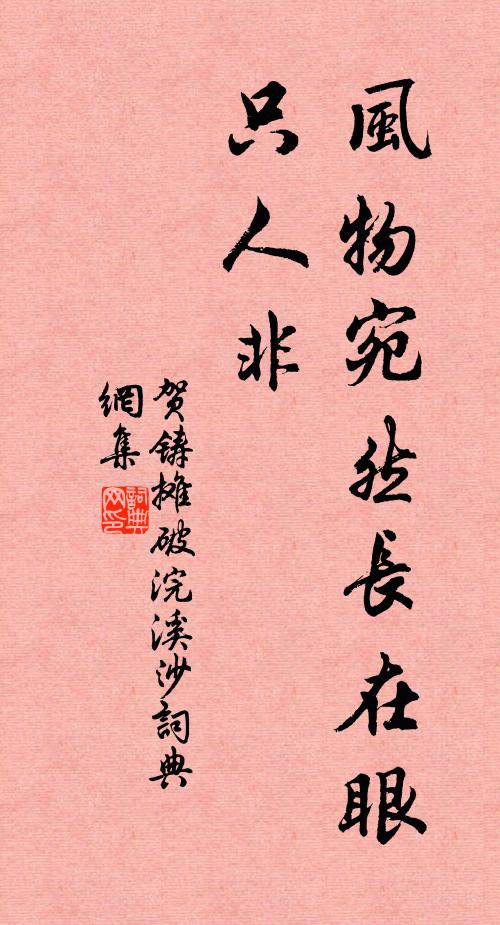 風物宛然長在眼
只人非
贺鑄摊破浣溪沙詞典
網集
詞典
网印